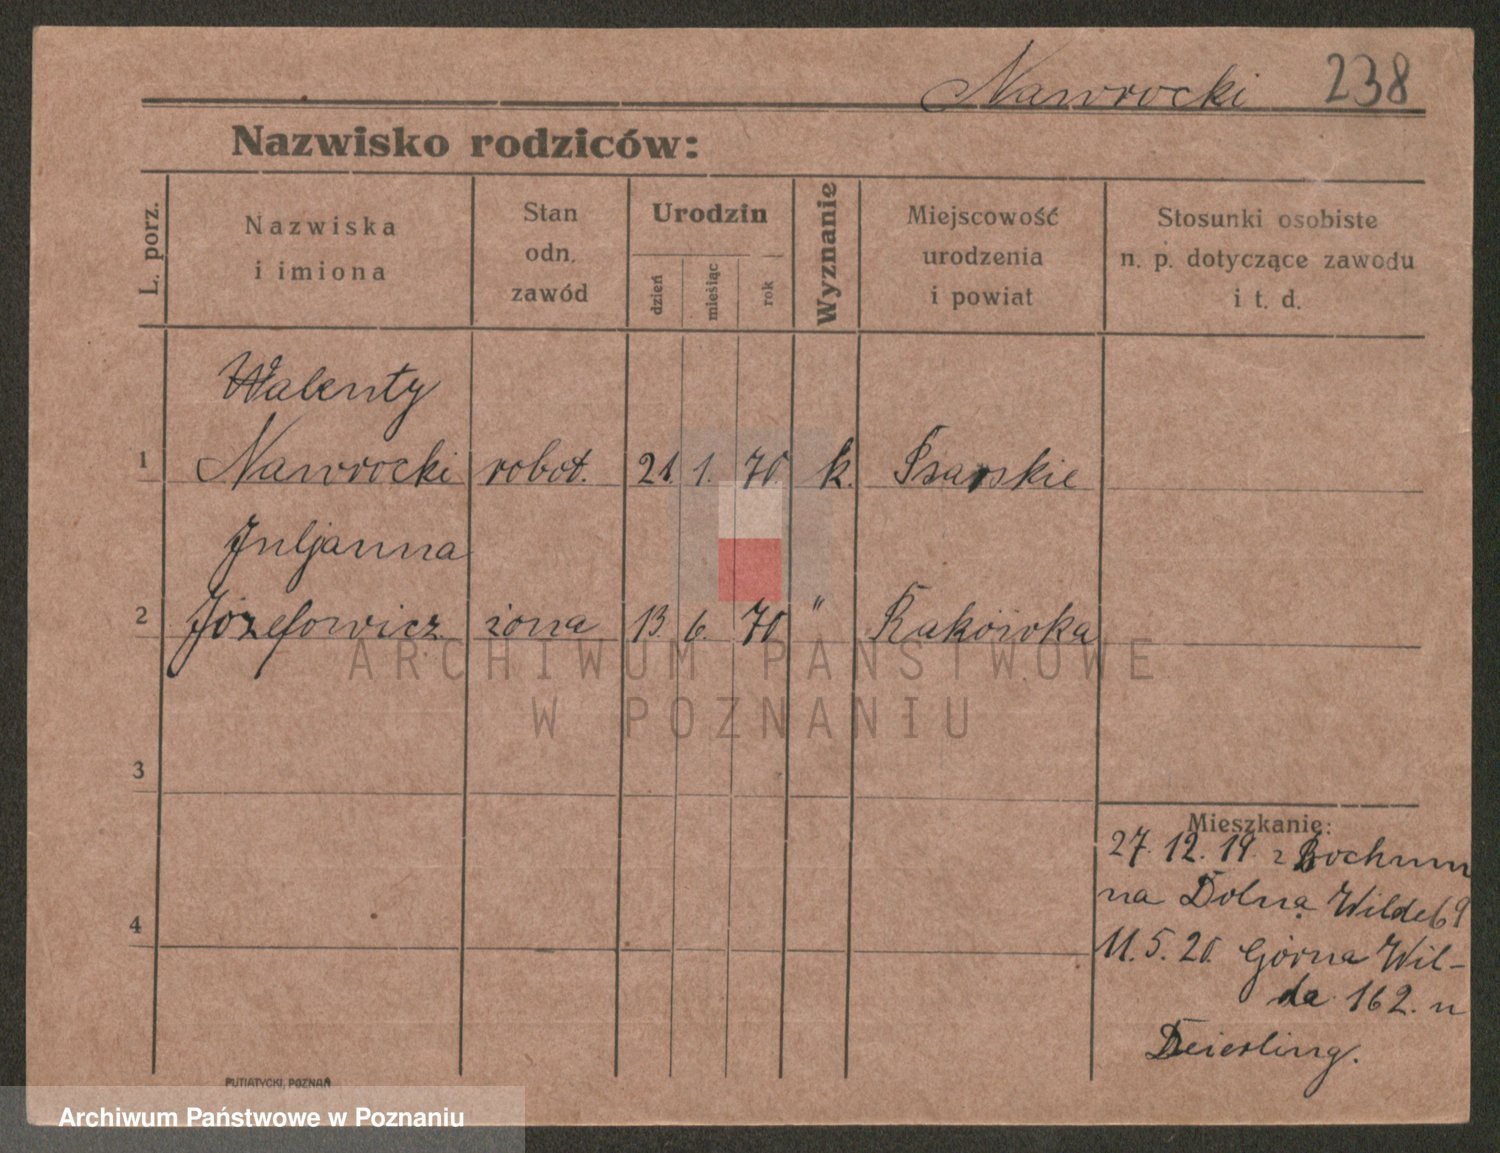 Nawrocki 238
Nazwisko rodziców:
L. porz.
Nazwiska
i imiona
Stan
odn.
zawód
Urodzin
dzień
miesiąc
rok
Wyznanie
Miejscowość
urodzenia
i powiat
Stosunki osobiste
n. p. dotyczące zawodu
i t. d.
Walenty
1 Nawrocki robot. 21. 1. 70 k. Psarskie
Juljanna
2 Józefowicz żona 13. 6. 70 " Rakówka
3
4
Mieszkanie:
27. 12. 19. z Bochum
na Dolna Wilde 69
11. 5. 20. Górna Wil-
da 162. u
Deierling.
PUTIATYCKI, POZNAŃ
ARCHIWUM PAŃSTWOWE
W POZNANIU
Archiwum Państwowe w Poznaniu